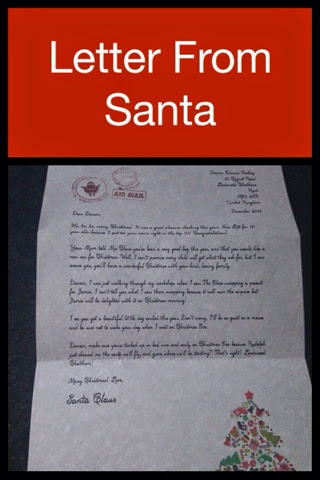 Letter From
Santa
AIR MAIL
December 2013
Dear
Ho, ho, ho, merry Christmas! It was a great pleasure checking this year's Nice List for 10
year olds because I spotted your name right in the top 10! Congratulations!
Your Mum told Mrs Claus you've been a very good boy this year, and that you would like a
new for Christmas. Well, I can't promise every child will get what they ask for, but I can
assure you, you'll have a wonderful Christmas with your kind, loving family.
I was just walking through my workshop, when I saw The Elves wrapping a present
for I can't tell you what I saw them wrapping because it will ruin the surprise but
will be delighted with it on Christmas morning!
I see you get a beautiful little dog earlier this year. Don't worry, I'll be as quiet as a mouse
and be sure not to wake your dog when I visit on Christmas Eve.
make sure you're tucked up in bed nice and early on Christmas Eve because Rudolph
just showed me the route we'll fly, and guess where we'll be starting? That's right!
Merry Christmas! Love,
Santa Claus